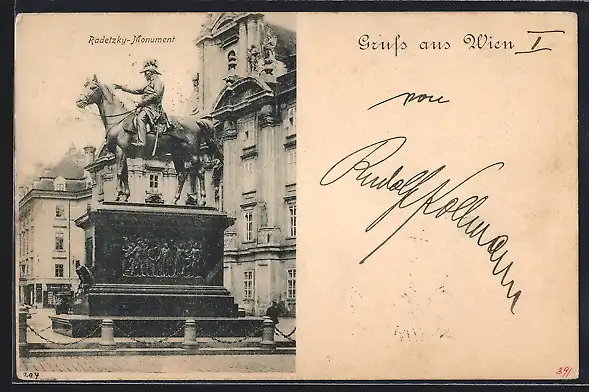 Radetzky-Monument
Gruss aus Wien I
von
Rudolf Kollmann
294
391